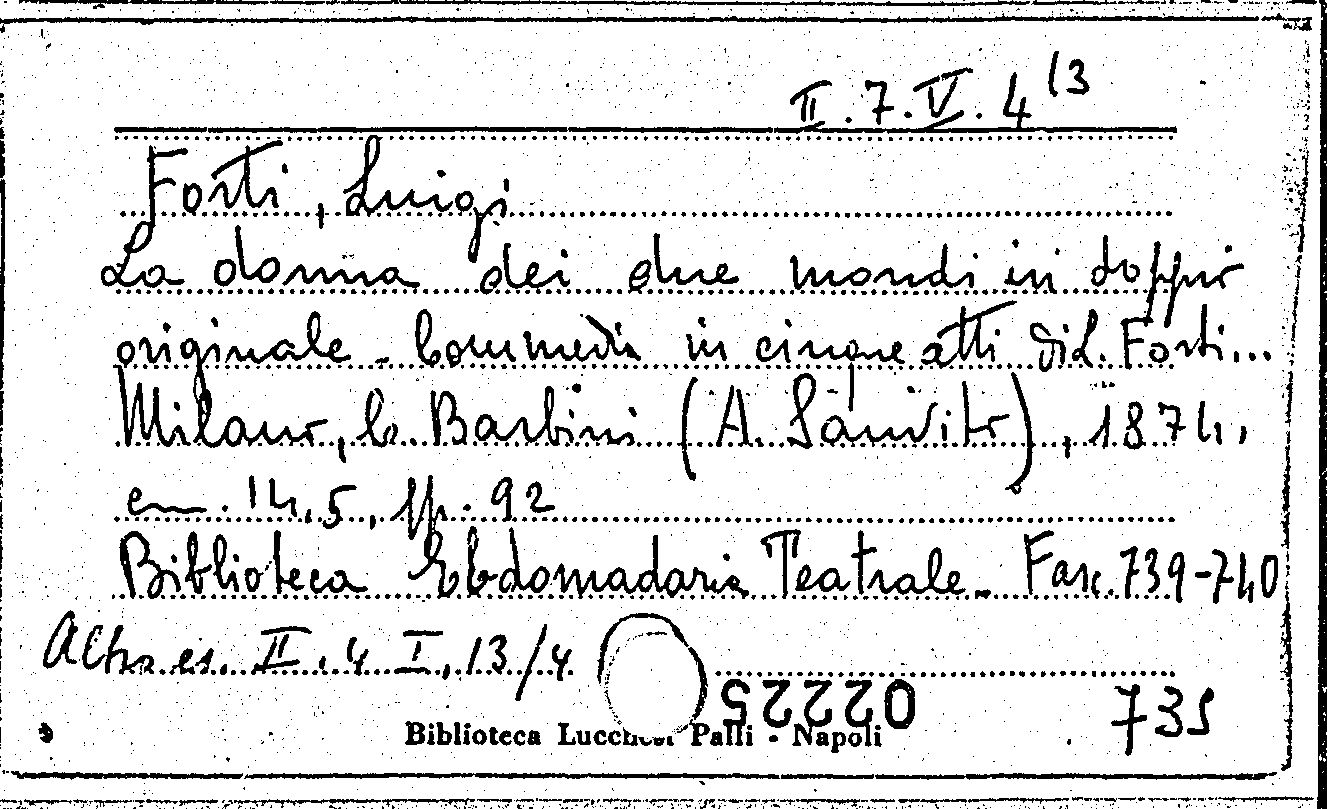 II.7.V.4 13
Forti, Luigi
La donna dei due mondi in doppio
originale - Commedia in cinque atti di L. Forti...
Milano, C. Barbini (A. Sanvito), 1874,
cm. 14,5, pp. 92
Biblioteca Ebdomadaria Teatrale - Fasc. 739-740
Altro es. II.4 I, 13/4
02225
735
Biblioteca Lucchesi Palli - Napoli